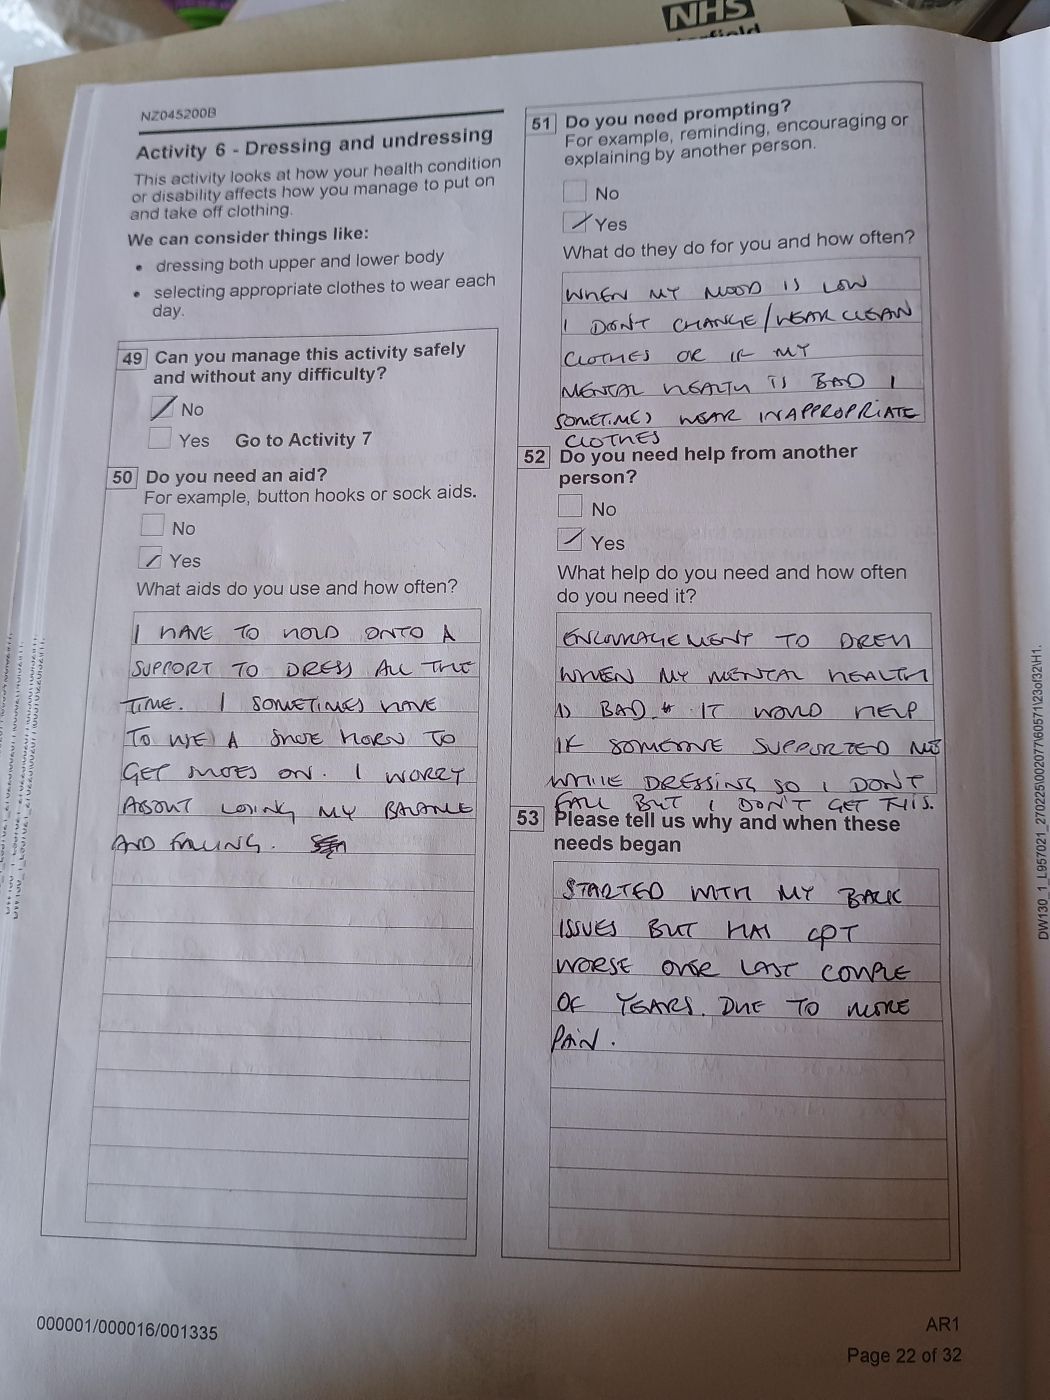 NHS
NZ045200B
Activity 6 - Dressing and undressing
This activity looks at how your health condition
or disability affects how you manage to put on
and take off clothing.
We can consider things like:
• dressing both upper and lower body
• selecting appropriate clothes to wear each
day.
49 Can you manage this activity safely
and without any difficulty?
No
Yes Go to Activity 7
50 Do you need an aid?
For example, button hooks or sock aids.
No
Yes
What aids do you use and how often?
I HAVE TO HOLD ONTO A
SUPPORT TO DRESS ALL THE
TIME. I SOMETIMES HAVE
TO USE A SHOE HORN TO
GET SHOES ON. I WORRY
ABOUT LOSING MY BALANCE
AND FALLING.
51 Do you need prompting?
For example, reminding, encouraging or
explaining by another person.
No
Yes
What do they do for you and how often?
WHEN MY MOOD IS LOW
I DON'T CHANGE/WEAR CLEAN
CLOTHES OR IF MY
MENTAL HEALTH IS BAD I
SOMETIMES WEAR INAPPROPRIATE
CLOTHES
52 Do you need help from another
person?
No
Yes
What help do you need and how often
do you need it?
ENCOURAGEMENT TO DRESS
WHEN MY MENTAL HEALTH
IS BAD. IT WOULD HELP
IF SOMEONE SUPPORTED ME
WHILE DRESSING SO I DON'T
FALL BUT I DON'T GET THIS.
53 Please tell us why and when these
needs began
STARTED WITH MY BACK
ISSUES BUT HAS GOT
WORSE OVER LAST COUPLE
OF YEARS. DUE TO MORE
PAIN.
000001/000016/001335
AR1
Page 22 of 32
DW130_1_L957021_270225\002077\60571\23of32\H1.